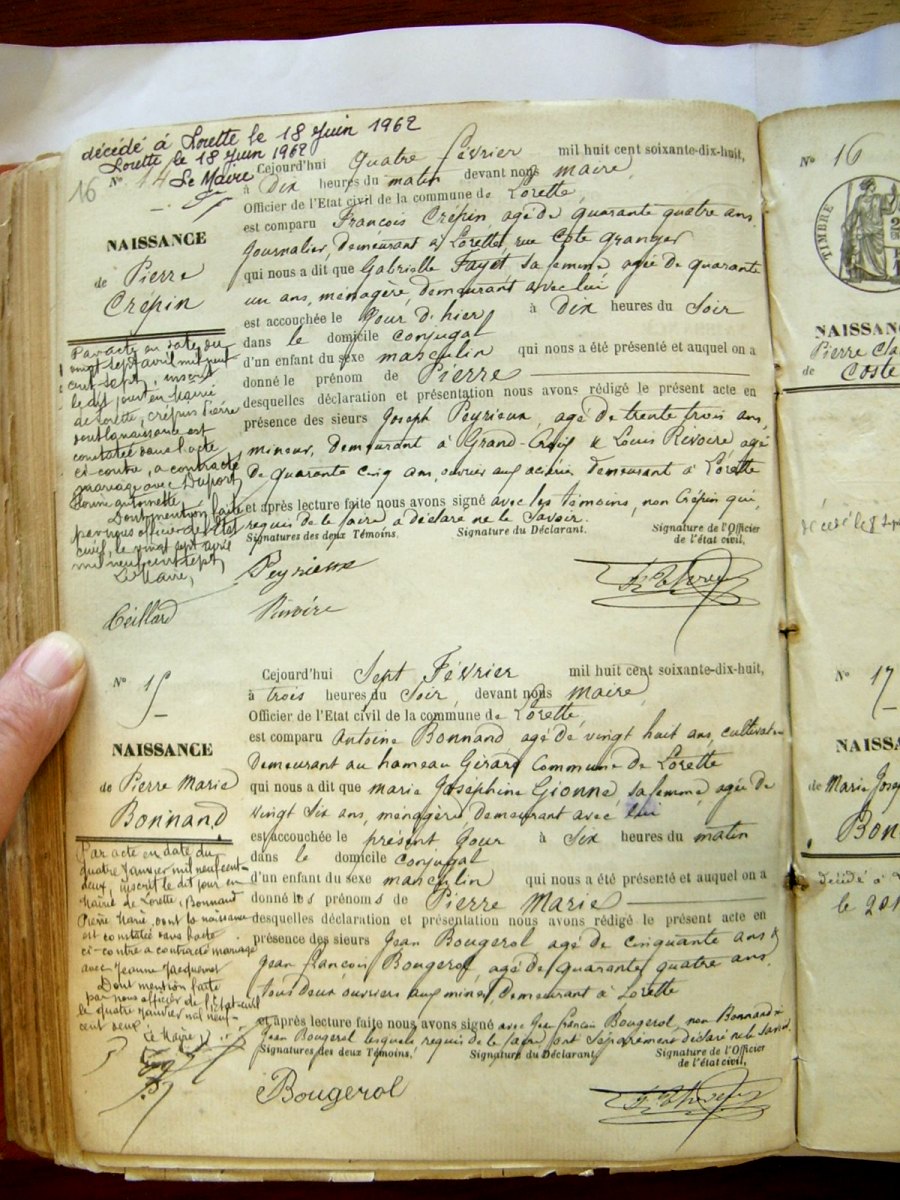 décédé à Lorette le 18 Juin 1962
Lorette le 18 Juin 1962
Le Maire
16 N° 14
NAISSANCE
de Pierre
Crépin
Par acte en date du
vingt sept avril mil neuf
cent sept, inscrit
le dit jour en Mairie
de Lorette, Crépin Pierre
dont la naissance est
constatée dans l'acte
ci-contre, a contracté
mariage avec Dupont
antoinette
Dont mention faite
par nous officier de l'Etat
civil, le vingt sept avril
mil neuf cent sept,
Le Maire,
Ceillard
Cejourd'hui quatre février mil huit cent soixante-dix-huit,
à Dix heures du matin devant nous Maire,
Officier de l'Etat civil de la commune de Lorette,
est comparu François Crépin agé de quarante quatre ans
Journalier, demeurant à Lorette, rue Côte Granger
qui nous a dit que Gabrielle Fayet, sa femme agée de quarante
un ans, ménagère, demeurant avec lui
est accouchée le Jour d'hier à Dix heures du Soir
dans le domicile conjugal
d'un enfant du sexe masculin qui nous a été présenté et auquel on a
donné le prénom de Pierre
desquelles déclaration et présentation nous avons rédigé le présent acte en
présence des sieurs Joseph Peyrieux, agé de trente trois ans,
mineur, demeurant à Grand-Croix & Louis Rivoire agé
de quarante cinq ans, ouvrier aux aciéries demeurant à Lorette
et après lecture faite nous avons signé avec les témoins, non Crépin qui,
requis de le faire a déclaré ne le Savoir.
Signatures des deux Témoins, Signature du Déclarant, Signature de l'Officier
de l'état civil,
Peyrieux
Rivoire
N° 15
NAISSANCE
de Pierre Marie
Bonnand
Par acte en date du
quatre Janvier mil neuf cent-
deux, inscrit le dit jour en
Mairie de Lorette, Bonnand
Pierre Marie, dont la naissance
est constatée dans l'acte
ci-contre a contracté mariage
avec Jeanne Jacquemot
Dont mention faite
par nous officier de l'état-civil
le quatre Janvier mil neuf-
cent deux
Le Maire
Cejourd'hui Sept Février mil huit cent soixante-dix-huit,
à trois heures du Soir, devant nous Maire,
Officier de l'Etat civil de la commune de Lorette,
est comparu Antoine Bonnand agé de vingt huit ans, cultivateur
Demeurant au hameau Girard Commune de Lorette
qui nous a dit que Marie Joséphine Gionne, sa femme, agée de
Vingt Six ans, ménagère, demeurant avec lui
est accouchée le présent Jour à Six heures du matin
dans le domicile conjugal
d'un enfant du sexe masculin qui nous a été présenté et auquel on a
donné les prénoms de Pierre Marie
desquelles déclaration et présentation nous avons rédigé le présent acte en
présence des sieurs Jean Bougerol, agé de cinquante ans &
Jean françois Bougerol, agé de quarante quatre ans,
tous deux ouvriers aux mines, demeurant à Lorette
et après lecture faite nous avons signé avec Jean françois Bougerol, non Bonnand &
Jean Bougerol lesquels requis de le faire, ont Séparément déclaré ne le Savoir.
Signatures des deux Témoins, Signature du Déclarant, Signature de l'Officier
de l'état civil,
Bougerol
N° 16
TIMBRE
NAISSANC
Pierre Cla
de Coste
N° 17
NAISSA
de Marie Jose
Bon
Décédé à L
le 20